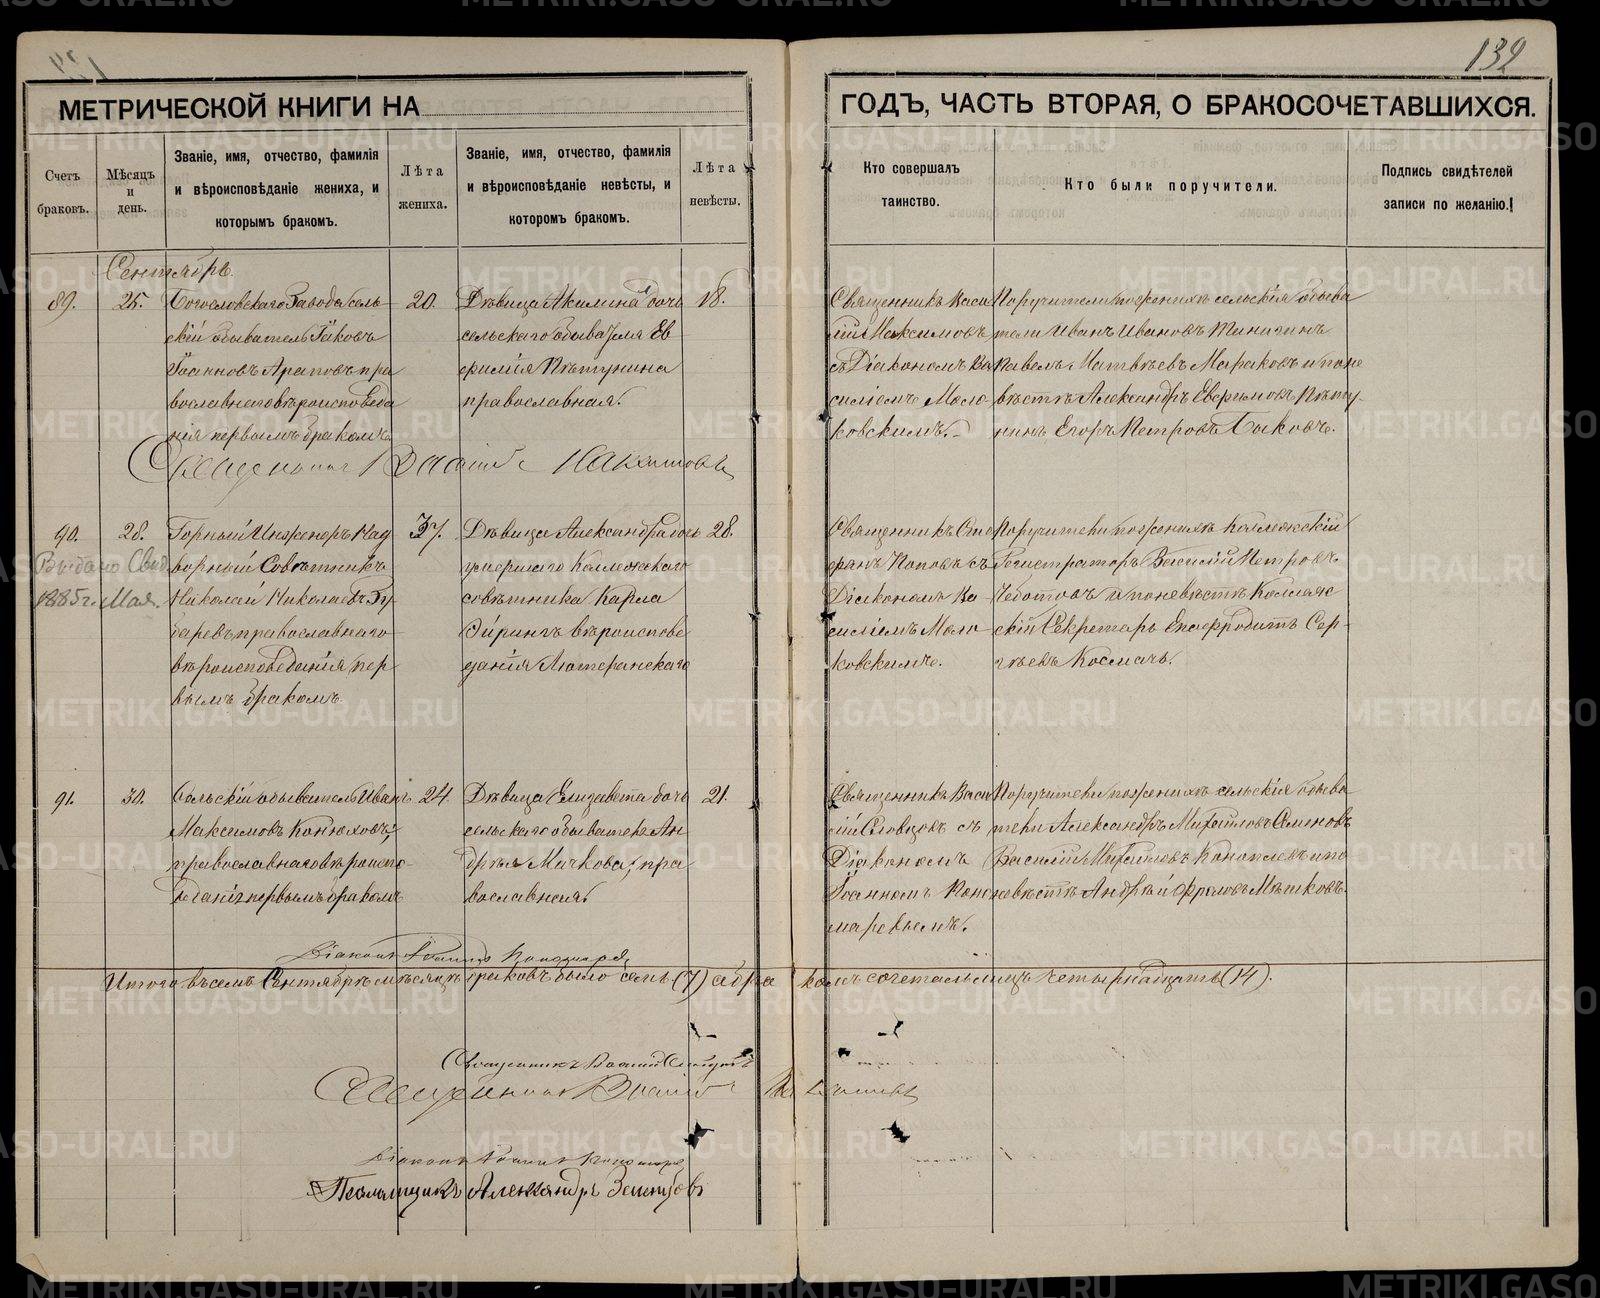 132
МЕТРИЧЕСКОЙ КНИГИ НА
ГОДЪ, ЧАСТЬ ВТОРАЯ, О БРАКОСОЧЕТАВШИХСЯ.
Счетъ
браковъ.
Мѣсяцъ
и
день.
Званіе, имя, отчество, фамилія
и вѣроисповѣданіе жениха, и
которымъ бракомъ.
Лѣта
жениха.
Званіе, имя, отчество, фамилія
и вѣроисповѣданіе невѣсты, и
котором бракомъ.
Лѣта
невѣсты.
Кто совершалъ
таинство.
Кто были поручители.
Подпись свидѣтелей
записи по желанію.
Сентябрь
89.
25.
Богословскаго Завода сель-
скій обыватель Іаковъ
Іоанновъ Араповъ пра
вославнаго вѣроисповѣда
нія первымъ бракомъ
20.
Дѣвица Акилина дочь
сельскаго обывателя Ев
фимія Пѣтунина
православная.
18.
Священникъ Васи
лій Максимовъ
съ Діакономъ Ва
силіемъ Моло-
ковскимъ.
Поручители по женихѣ сельскія обыва
тели Иванъ Ивановъ
Павелъ Матвѣевъ Мараковъ и по не
вѣстѣ Александръ Евфимовъ Пѣту-
нинъ Егоръ Петровъ Быковъ.
Священникъ Василій Максимовъ
90.
28.
Выдано Свид.
1885 г. Мая.
Горный Инженеръ Над
ворный Совѣтникъ
Николай Николаевъ
православнаго
вѣроисповѣданія пер
вымъ бракомъ.
37.
Дѣвица Александра дочь
умершаго Коллежскаго
совѣтника Карла
вѣроисповѣ
данія Лютеранскаго
28.
Священникъ Сте
фанъ Поповъ съ
Діакономъ Ва
силіемъ Моло
ковскимъ.
Поручители по женихѣ Коллежскій
Регистраторъ Василій Петровъ
Чеботовъ и по невѣстѣ Коллеж
скій Секретарь Епафродитъ Сер-
гѣевъ Космачъ.
91.
30.
Сельскій обыватель Иванъ
Максимовъ Конюховъ,
православнаго вѣроиспо-
веданія первымъ бракомъ
24.
Дѣвица Елизавета дочь
сельскаго обывателя Ан
дрея Мичкова, пра
вославная.
21.
Священникъ Васи
лій Словцовъ съ
Діакономъ
Іоанномъ Поно
маревымъ.
Поручители по женихѣ сельскія обыва
тели Александръ Михайловъ Семеновъ
Василій Михайловъ Коноплевъ и по
невѣстѣ Андрей Фроловъ Мѣшковъ.
Діаконъ Іоаннъ Пономарев
Итого въ семъ Сентябрѣ мѣсяцѣ браковъ было семь (7) а бра комъ сочеталъ лицъ четырнадцать (14).
Священникъ Василій Словцовъ
Священникъ Василій Максимовъ
Діаконъ Іоаннъ Пономарев
Псаломщикъ Александръ Земляновъ
METRIKI.GASO-URAL.RU